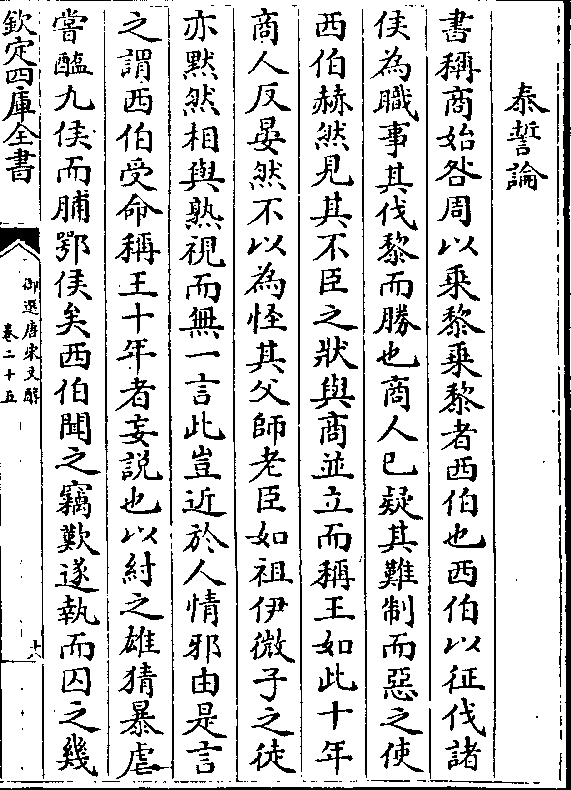 泰誓論
書稱商始咎周以乘黎乘黎者西伯也西伯以征伐諸
侯為職事其伐黎而勝也商人已疑其難制而惡之使
西伯赫然見其不臣之狀與商並立而稱王如此十年
商人反晏然不以為怪其父師老臣如祖伊微子之徒
亦黙然相與熟視而無一言此豈近於人情邪由是言
之謂西伯受命稱王十年者妄說也以紂之雄猜暴虐
嘗醢九侯而脯鄂侯矣西伯聞之竊歎遂執而囚之幾
欽定四庫全書
御選唐宋文醇
卷二十五
十八